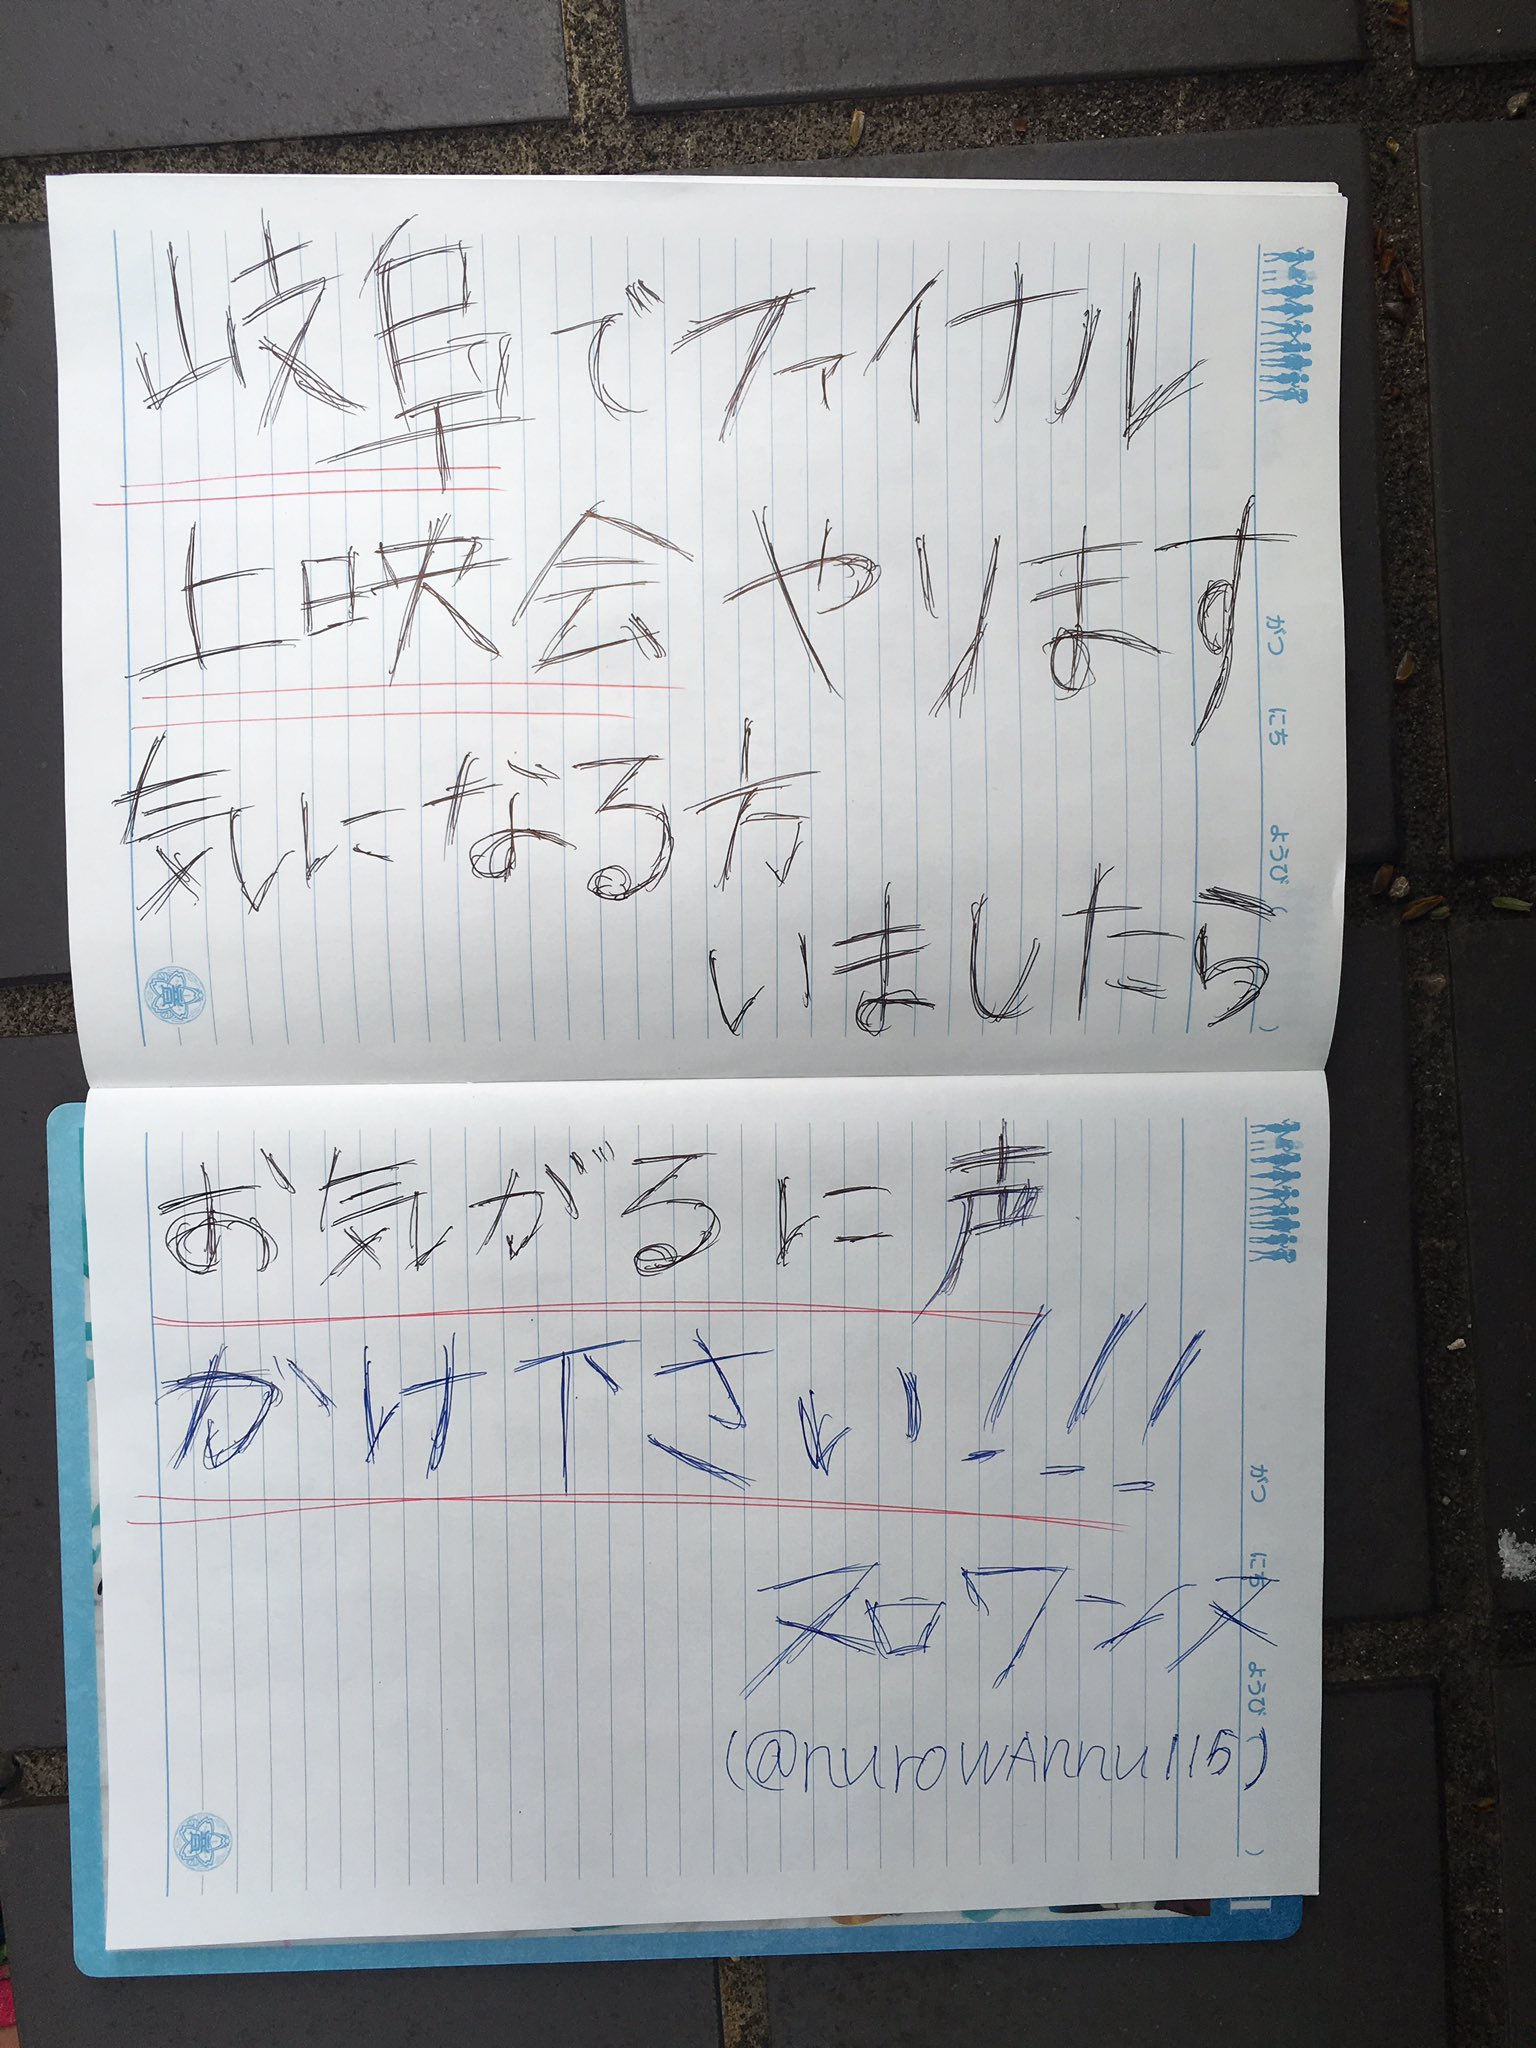 岐阜でファイナル
上映会やります
気になる方
いましたら
がつ にち ようび ( )
お気がるに声
かけ下さい!!!
ヌロワンヌ
(@nurowAnnu115)
がつ にち ようび ( )